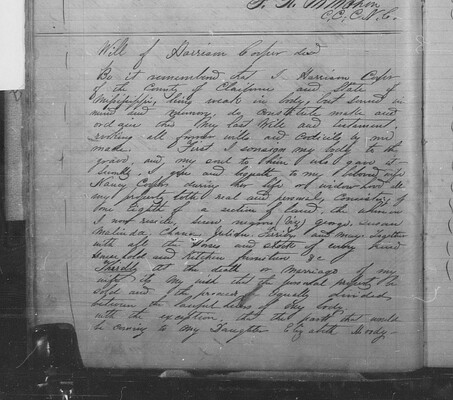 Will of Harrison Cosper decd
Be it remembered that I Harrison Cosper
of the County of Claiborne and State of
Mississippi, being weak in body, but sound in
mind and memory do constitute make and
ordain this my last Will and testament
revoking all former wills and codicils by me
made. First I consign my body to the
grave, and my soul to him who gave it
I give and bequeath to my beloved wife
Nancy Cosper during her life or widowhood all
my property both real and personal, consisting of
one Eighth of a section of land, the
I now reside, seven negroes (viz) George, Susan
Malinda, and mary, together
with all the and stock of every kind
household and kitchen furniture &c
Thirdly at the death or marriage of my
wife its my wish that the personal property be
sold and the proceeds equally divided
between the heirs of my body
with the exception, that the part that would
be coming to my Daughter Elizabeth Moody